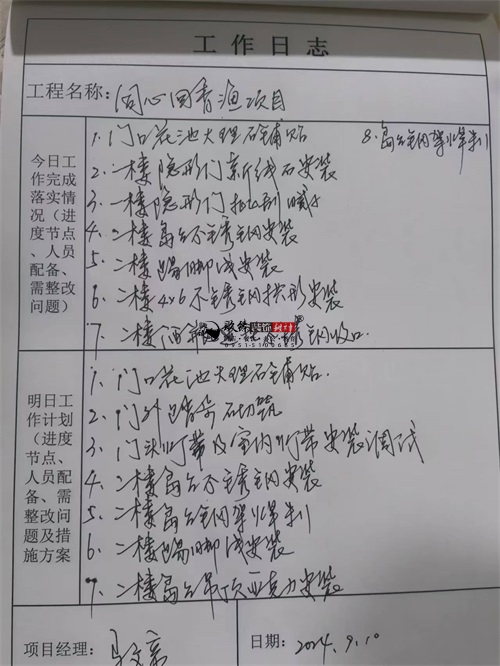 工作日志
工程名称: 同心回香渔项目
今日工作完成落实情况(进度节点、人员配备、需整改问题)
1. 门口花池大理石铺贴
8. 岛台钢架焊制
2. 一楼隐形门新线石安装
3. 一楼隐形门
4. 二楼岛台不锈钢安装
5. 二楼踢脚线安装
6. 二楼4×6不锈钢拱形安装
7. 二楼 不锈钢收口
装饰设计
0951-5100
明日工作计划(进度节点、人员配备、需整改问题及措施方案
1. 门口花池大理石铺贴.
2. 门外 石切筑
3. 门头灯带及室内灯带安装调试
4. 二楼岛台不锈钢安装
5. 二楼岛台钢架焊制
6. 二楼踢脚线安装
7. 二楼岛台吊顶亚克力安装
项目经理:
日期: 2024.9.10